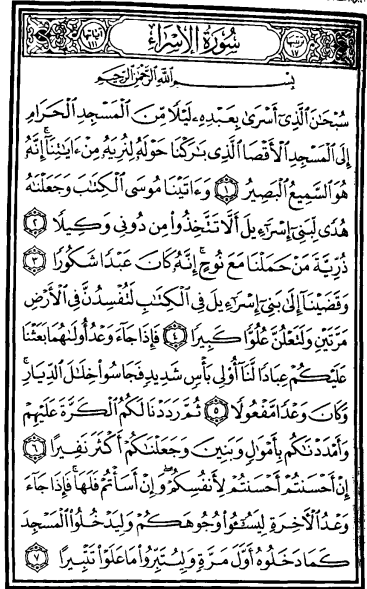 ترتيبها ١٧ سُورَةُ الإِسْرَاءِ آياتها ١١١
بِسْمِ اللَّهِ الرَّحْمَٰنِ الرَّحِيمِ
سُبْحَٰنَ الَّذِىٓ أَسْرَىٰ بِعَبْدِهِۦ لَيْلًا مِّنَ الْمَسْجِدِ الْحَرَامِ
إِلَى الْمَسْجِدِ الْأَقْصَا الَّذِى بَٰرَكْنَا حَوْلَهُۥ لِنُرِيَهُۥ مِنْ ءَايَٰتِنَآ ۚ إِنَّهُۥ
هُوَ السَّمِيعُ الْبَصِيرُ ١ وَءَاتَيْنَا مُوسَى الْكِتَٰبَ وَجَعَلْنَٰهُ
هُدًى لِّبَنِىٓ إِسْرَٰٓءِيلَ أَلَّا تَتَّخِذُوا۟ مِن دُونِى وَكِيلًا ٢
ذُرِّيَّةَ مَنْ حَمَلْنَا مَعَ نُوحٍ ۚ إِنَّهُۥ كَانَ عَبْدًا شَكُورًا ٣
وَقَضَيْنَآ إِلَىٰ بَنِىٓ إِسْرَٰٓءِيلَ فِى الْكِتَٰبِ لَتُفْسِدُنَّ فِى الْأَرْضِ
مَرَّتَيْنِ وَلَتَعْلُنَّ عُلُوًّا كَبِيرًا ٤ فَإِذَا جَآءَ وَعْدُ أُولَىٰهُمَا بَعَثْنَا
عَلَيْكُمْ عِبَادًا لَّنَآ أُو۟لِى بَأْسٍ شَدِيدٍ فَجَاسُوا۟ خِلَٰلَ الدِّيَارِ ۚ
وَكَانَ وَعْدًا مَّفْعُولًا ٥ ثُمَّ رَدَدْنَا لَكُمُ الْكَرَّةَ عَلَيْهِمْ
وَأَمْدَدْنَٰكُم بِأَمْوَٰلٍ وَبَنِينَ وَجَعَلْنَٰكُمْ أَكْثَرَ نَفِيرًا ٦
إِنْ أَحْسَنتُمْ أَحْسَنتُمْ لِأَنفُسِكُمْ ۖ وَإِنْ أَسَأْتُمْ فَلَهَا ۚ فَإِذَا جَآءَ
وَعْدُ الْءَاخِرَةِ لِيَسُۥٓـُٔوا۟ وُجُوهَكُمْ وَلِيَدْخُلُوا۟ الْمَسْجِدَ
كَمَا دَخَلُوهُ أَوَّلَ مَرَّةٍ وَلِيُتَبِّرُوا۟ مَا عَلَوْا۟ تَتْبِيرًا ٧